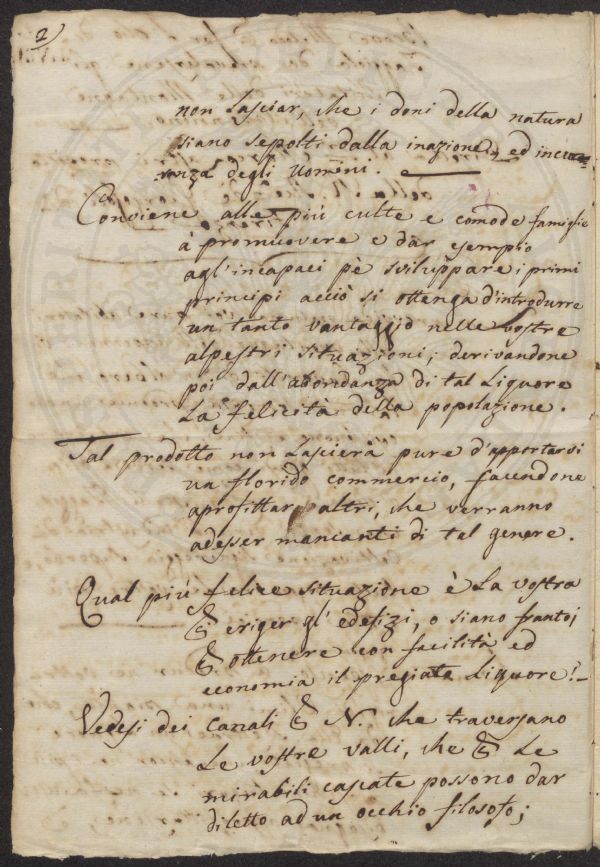 2
non lasciar, che i doni della natura
siano sepolti dalla inazione, ed incu=
ranza degli Uomini.
Conviene alle più culte e comode famiglie
à promuovere e dar esempio
agl'incapaci pè sviluppare i primi
principi acciò si ottenga d'introdurre
un tanto vantaggio nelle vostre
alpestri situazioni; derivandone
poi dall'abondanza di tal Liquore
La felicità della popolazione.
Tal prodotto non Lascierà pure d'apportarvi
un florido commercio, facendone
aprofittar altri, che verranno
adesser mancanti di tal genere.
Qual più felice situazione è La vostra
eriger gl'edefizi, o siano frantoj
ottenere con facilità ed
economia il pregiato Liquore!
Vedesi dei canali N. che traversano
Le vostre valli, che Le
mirabili cascate possono dar
diletto ad un occhio filosofo;